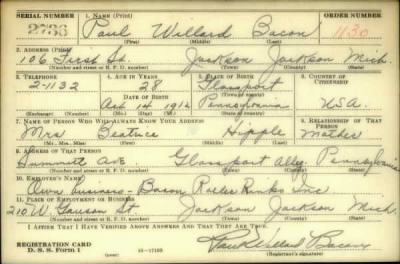 SERIAL NUMBER 1. NAME (Print) ORDER NUMBER
2733 Paul Willard Bacon 1130
(First) (Middle) (Last)
2. ADDRESS (Print)
106 First St. Jackson Jackson Mich.
(Number and street or R. F. D. number) (Town) (County) (State)
3. TELEPHONE 4. AGE IN YEARS 5. PLACE OF BIRTH 6. COUNTRY OF CITIZENSHIP
2-1132 28 Glassport
DATE OF BIRTH
14 1912 Pennsylvania U.S.A.
(Exchange) (Number) (Mo.) (Day) (Yr.) (State or country)
7. NAME OF PERSON WHO WILL ALWAYS KNOW YOUR ADDRESS 8. RELATIONSHIP OF THAT PERSON
Mrs Beatrice Hipple Mother
(Mr., Mrs., Miss) (First) (Middle) (Last)
9. ADDRESS OF THAT PERSON
Ave Glassport Pennsylvania
(Number and street or R. F. D. number) (Town) (County) (State)
10. EMPLOYER'S NAME
Own Business - Bacon Roller Rinks Inc
11. PLACE OF EMPLOYMENT OR BUSINESS
210 W St. Jackson Jackson Mich.
(Number and street or R. F. D. number) (Town) (County) (State)
I AFFIRM THAT I HAVE VERIFIED ABOVE ANSWERS AND THAT THEY ARE TRUE.
REGISTRATION CARD
D. S. S. Form 1 Paul Willard Bacon
(Registrant's signature)